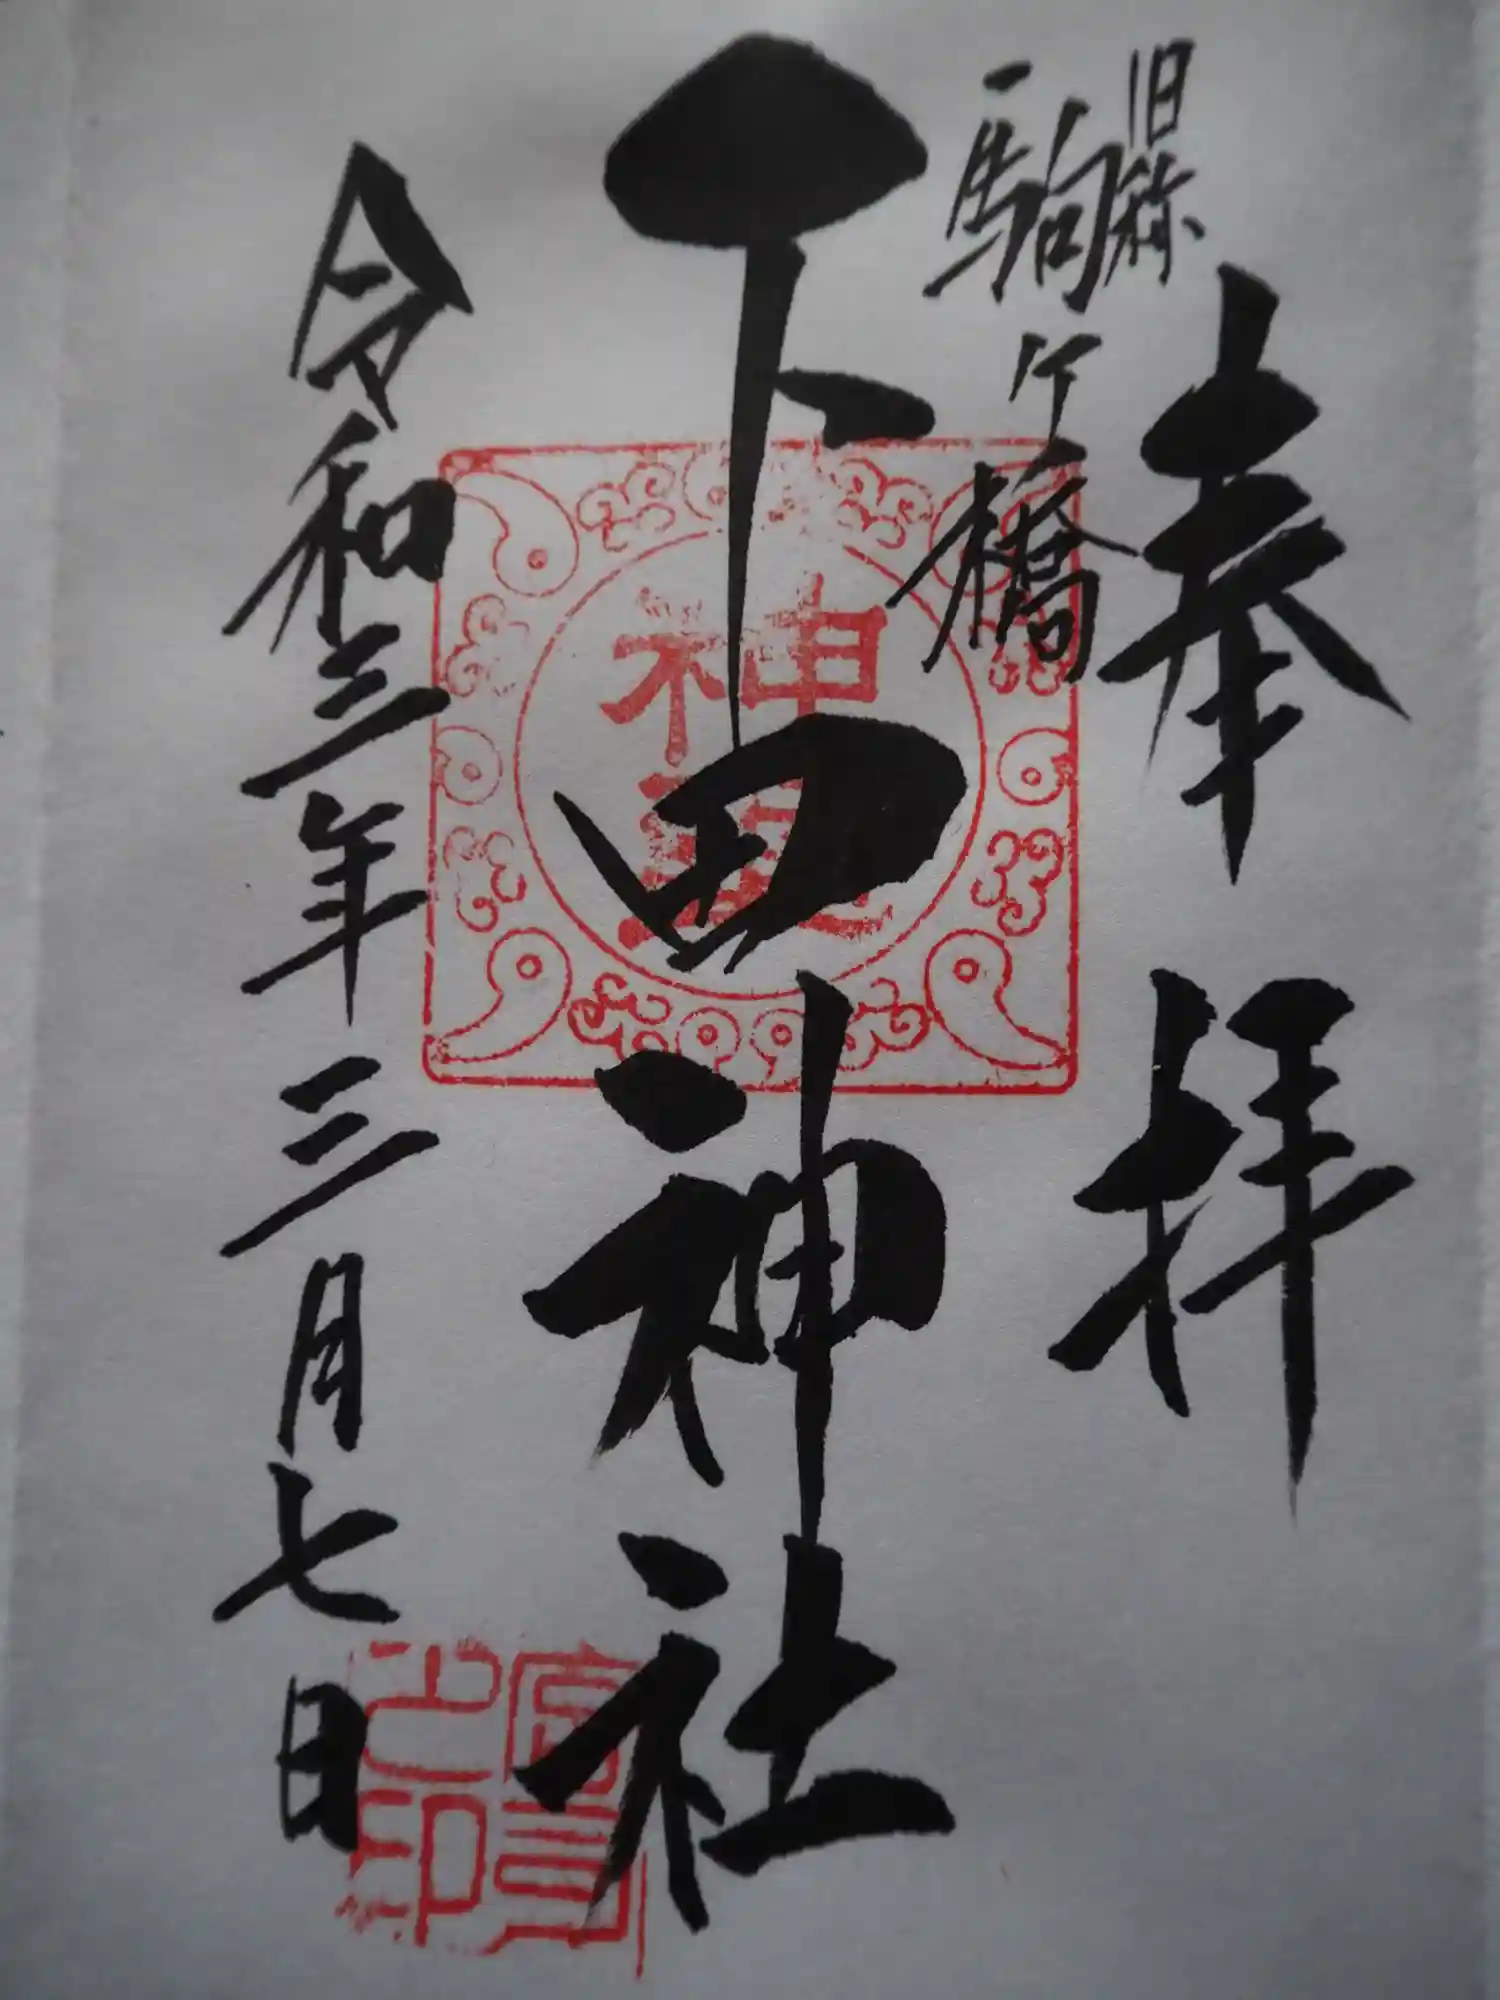 奉拝
旧県
駒ケ橋
下田神社
令和三年三月七日
神璽
宮司之印